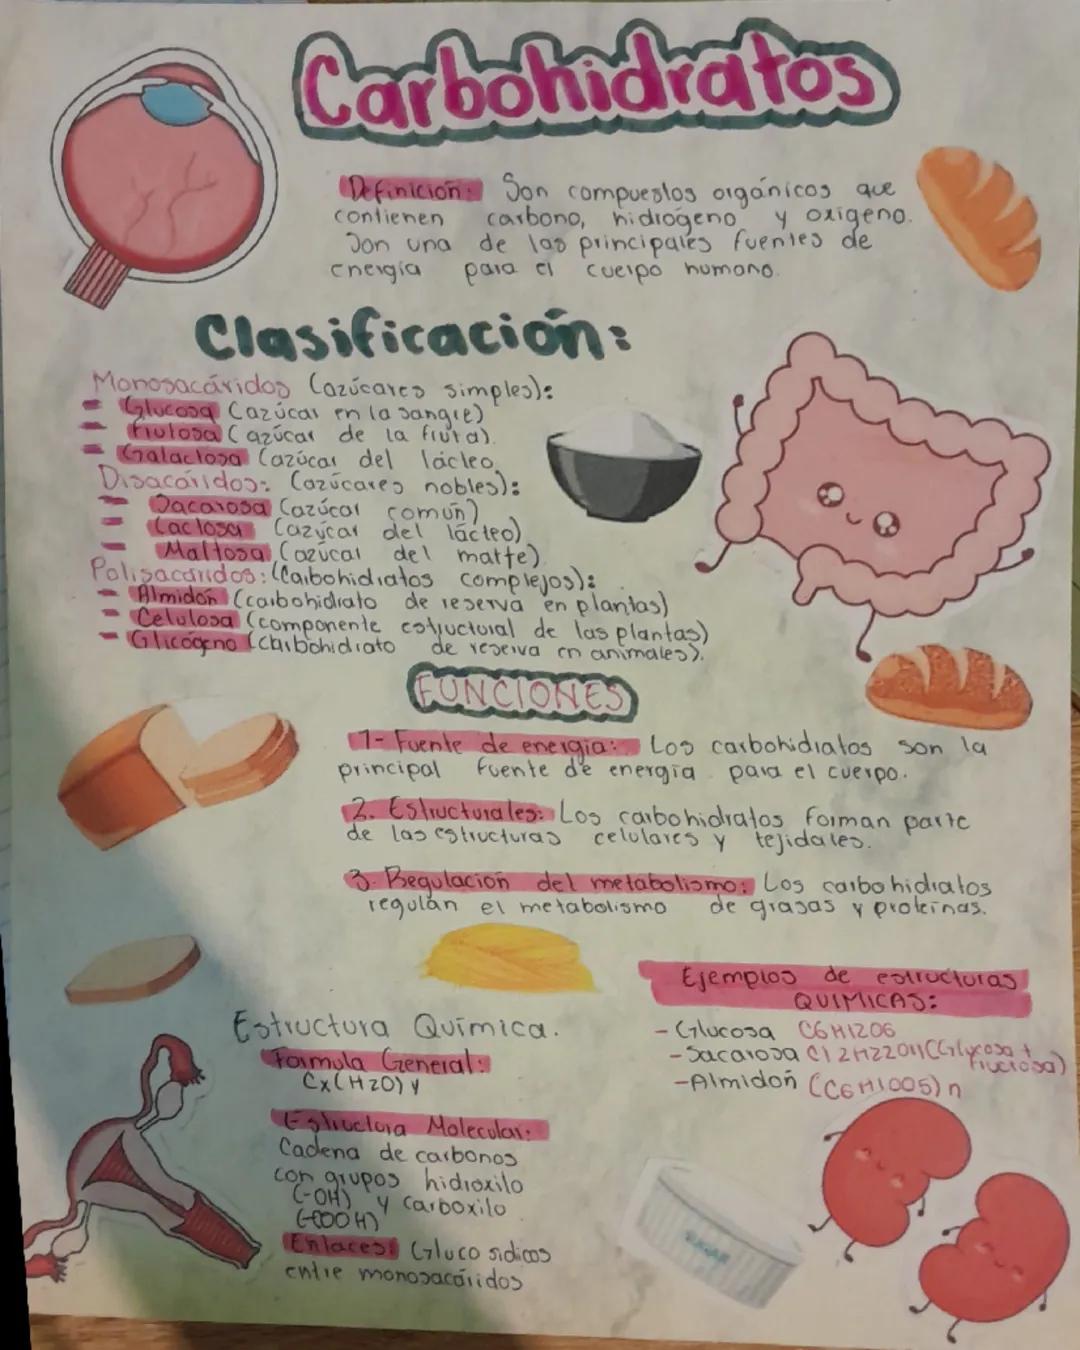 Carbohidratos
Definición: Son compuestos orgánicos que
contienen carbono, hidrógeno y oxigeno.
Son una de las principales fuentes de
energía para el cuerpo humano.
Clasificación:
Monosacáridos (azúcares simples):
- Glucosa (azúcar en la sangre)
- Frutosa (azúcar de la fruta).
- Galactosa (azúcar del lácteo.
Disacáridos: (azúcares nobles):
- Sacarosa (azúcar común)
- Lactosa (azúcar del lácteo)
- Maltosa (azúcar del malte)
Polisacáridos: (Carbohidratos complejos):
- Almidón (carbohidrato de reserva en plantas)
- Celulosa (componente estructural de las plantas)
- Glicógeno (carbohidrato de reserva en animales).
FUNCIONES
1- Fuente de energia: Los carbohidratos son la
principal fuente de energía para el cuerpo.
2. Estructurales: Los carbohidratos forman parte
de las estructuras celulares y tejidales.
3. Regulación del metabolismo: Los carbohidratos
regulan el metabolismo de grasas y proteínas.
Ejemplos de estructuras
QUIMICAS:
- Glucosa C6H12O6
- Sacarosa C12H22O11 (Glucosa +
Fructosa)
- Almidón (C6H10O5)n
Estructura Química.
Formula General:
Cx(H2O)y
Estructura Molecular:
Cadena de carbonos
con grupos hidroxilo
(-OH) y carboxilo
(-COOH)
Enlaces: Glucosidicos
entre monosacáridos